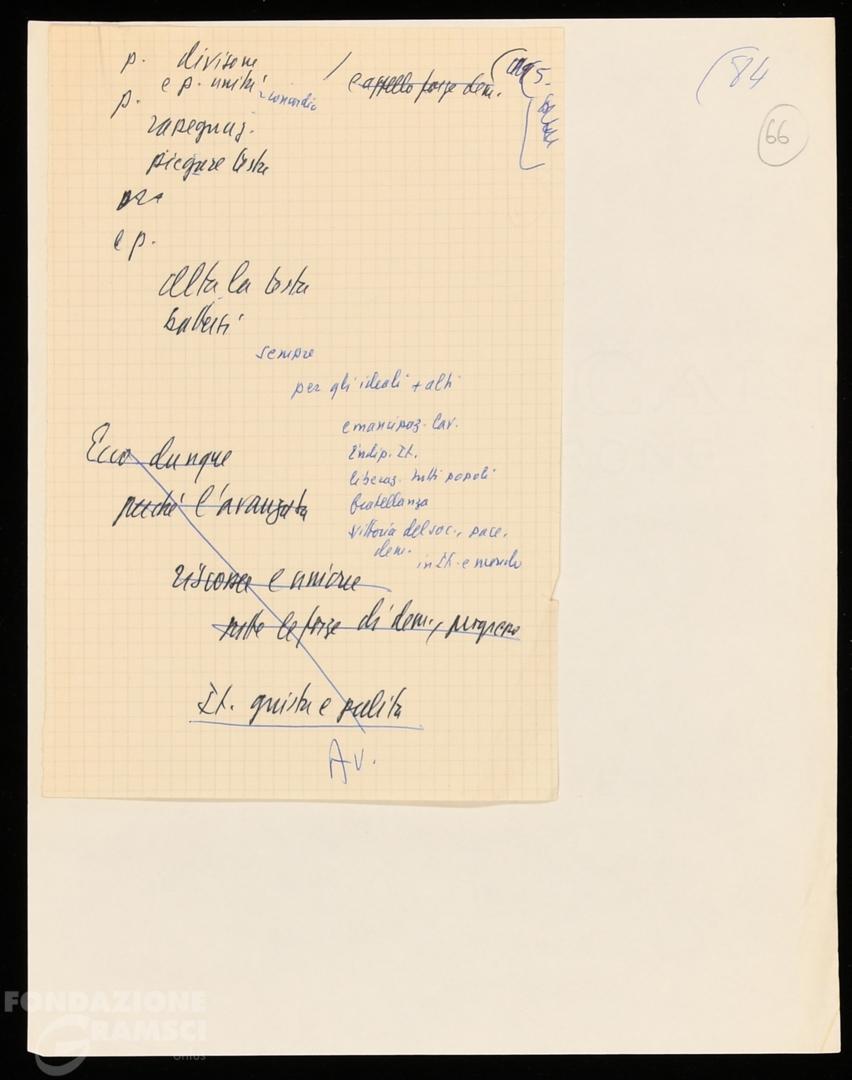 (84
66
p. divisone
/ e appello forze dem.
e p. unità
e concordia
p.
rassegnaz.
piegare testa
e p.
alta la testa
battersi
sempre
per gli ideali + alti
emancipaz. lav.
Indip. It.
liberaz. tutti popoli
fratellanza
vittoria del soc., pace,
dem.
in It. e mondo
Ecco dunque
perché l'avanzata
riscossa e unione
tutte le forze di dem., progresso
It. giusta e pulita
Av.
FONDAZIONE
GRAMSCI
onlus